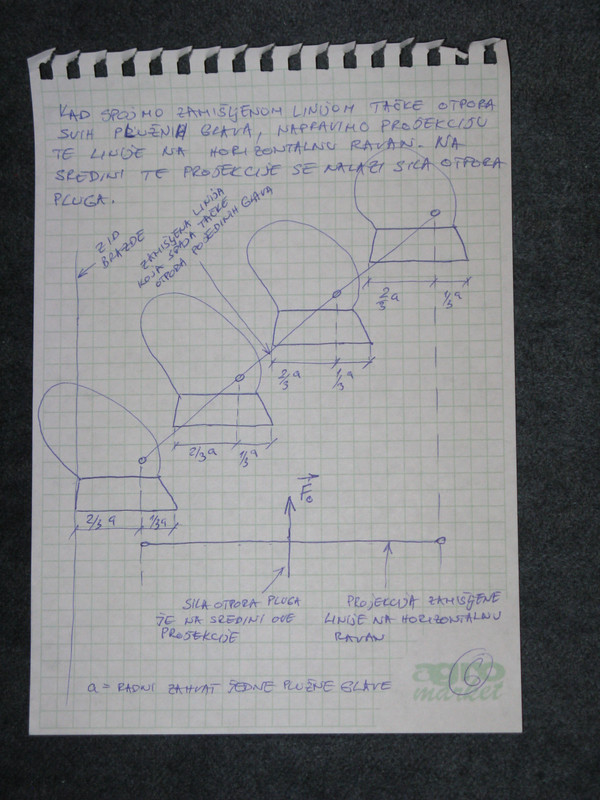 KAD SPOJIMO ZAMIŠLJENOM LINIJOM TAČKE OTPORA
SVIH PLUŽNIH GLAVA, NAPRAVIMO PROJEKCIJU
TE LINIJE NA HORIZONTALNU RAVAN. NA
SREDINI TE PROJEKCIJE SE NALAZI SILA OTPORA
PLUGA.
ZID
BRAZDE
ZAMIŠLJENA LINIJA
KOJA SPAJA TAČKE
OTPORA POJEDINIH GLAVA
2/3 a 1/3 a
2/3 a 1/3 a
2/3 a 1/3 a
2/3 a 1/3 a
SILA OTPORA PLUGA
JE NA SREDINI OVE
PROJEKCIJE
PROJEKCIJA ZAMIŠLJENE
LINIJE NA HORIZONTALNU
RAVAN
a = RADNI ZAHVAT JEDNE PLUŽNE GLAVE
6
market